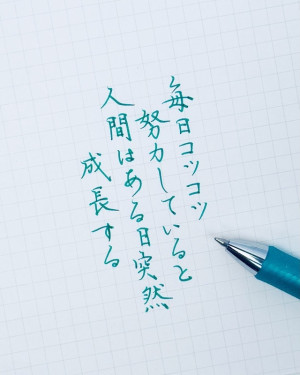 毎日コツコツ
努力していると
人間はある日突然
成長する